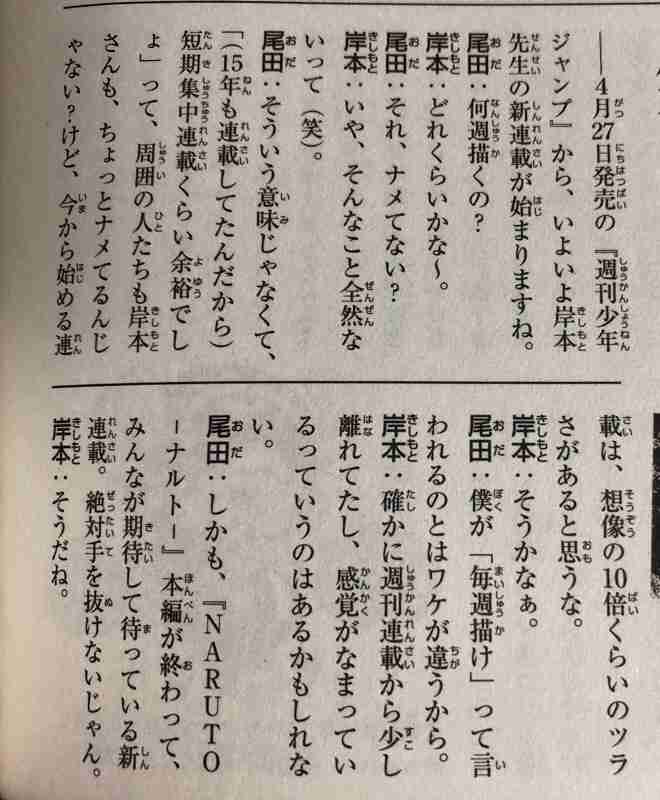 ――4月27日発売の『週刊少年
ジャンプ』から、いよいよ岸本
先生の新連載が始まりますね。
尾田：何週描くの？
岸本：どれくらいかな〜。
尾田：それ、ナメてない？
岸本：いや、そんなこと全然な
いって（笑）。
尾田：そういう意味じゃなくて、
「（15年も連載してたんだから）
短期集中連載くらい余裕でし
ょ」って、周囲の人たちも岸本
さんも、ちょっとナメてるんじ
ゃない？けど、今から始める連
載は、想像の10倍くらいのツラ
さがあると思うな。
岸本：そうかなぁ。
尾田：僕が「毎週描け」って言
われるのとはワケが違うから。
岸本：確かに週刊連載から少し
離れてたし、感覚がなまってい
るっていうのはあるかもしれな
い。
尾田：しかも、『NARUTO
ーナルトー』本編が終わって、
みんなが期待して待っている新
連載。絶対手を抜けないじゃん。
岸本：そうだね。